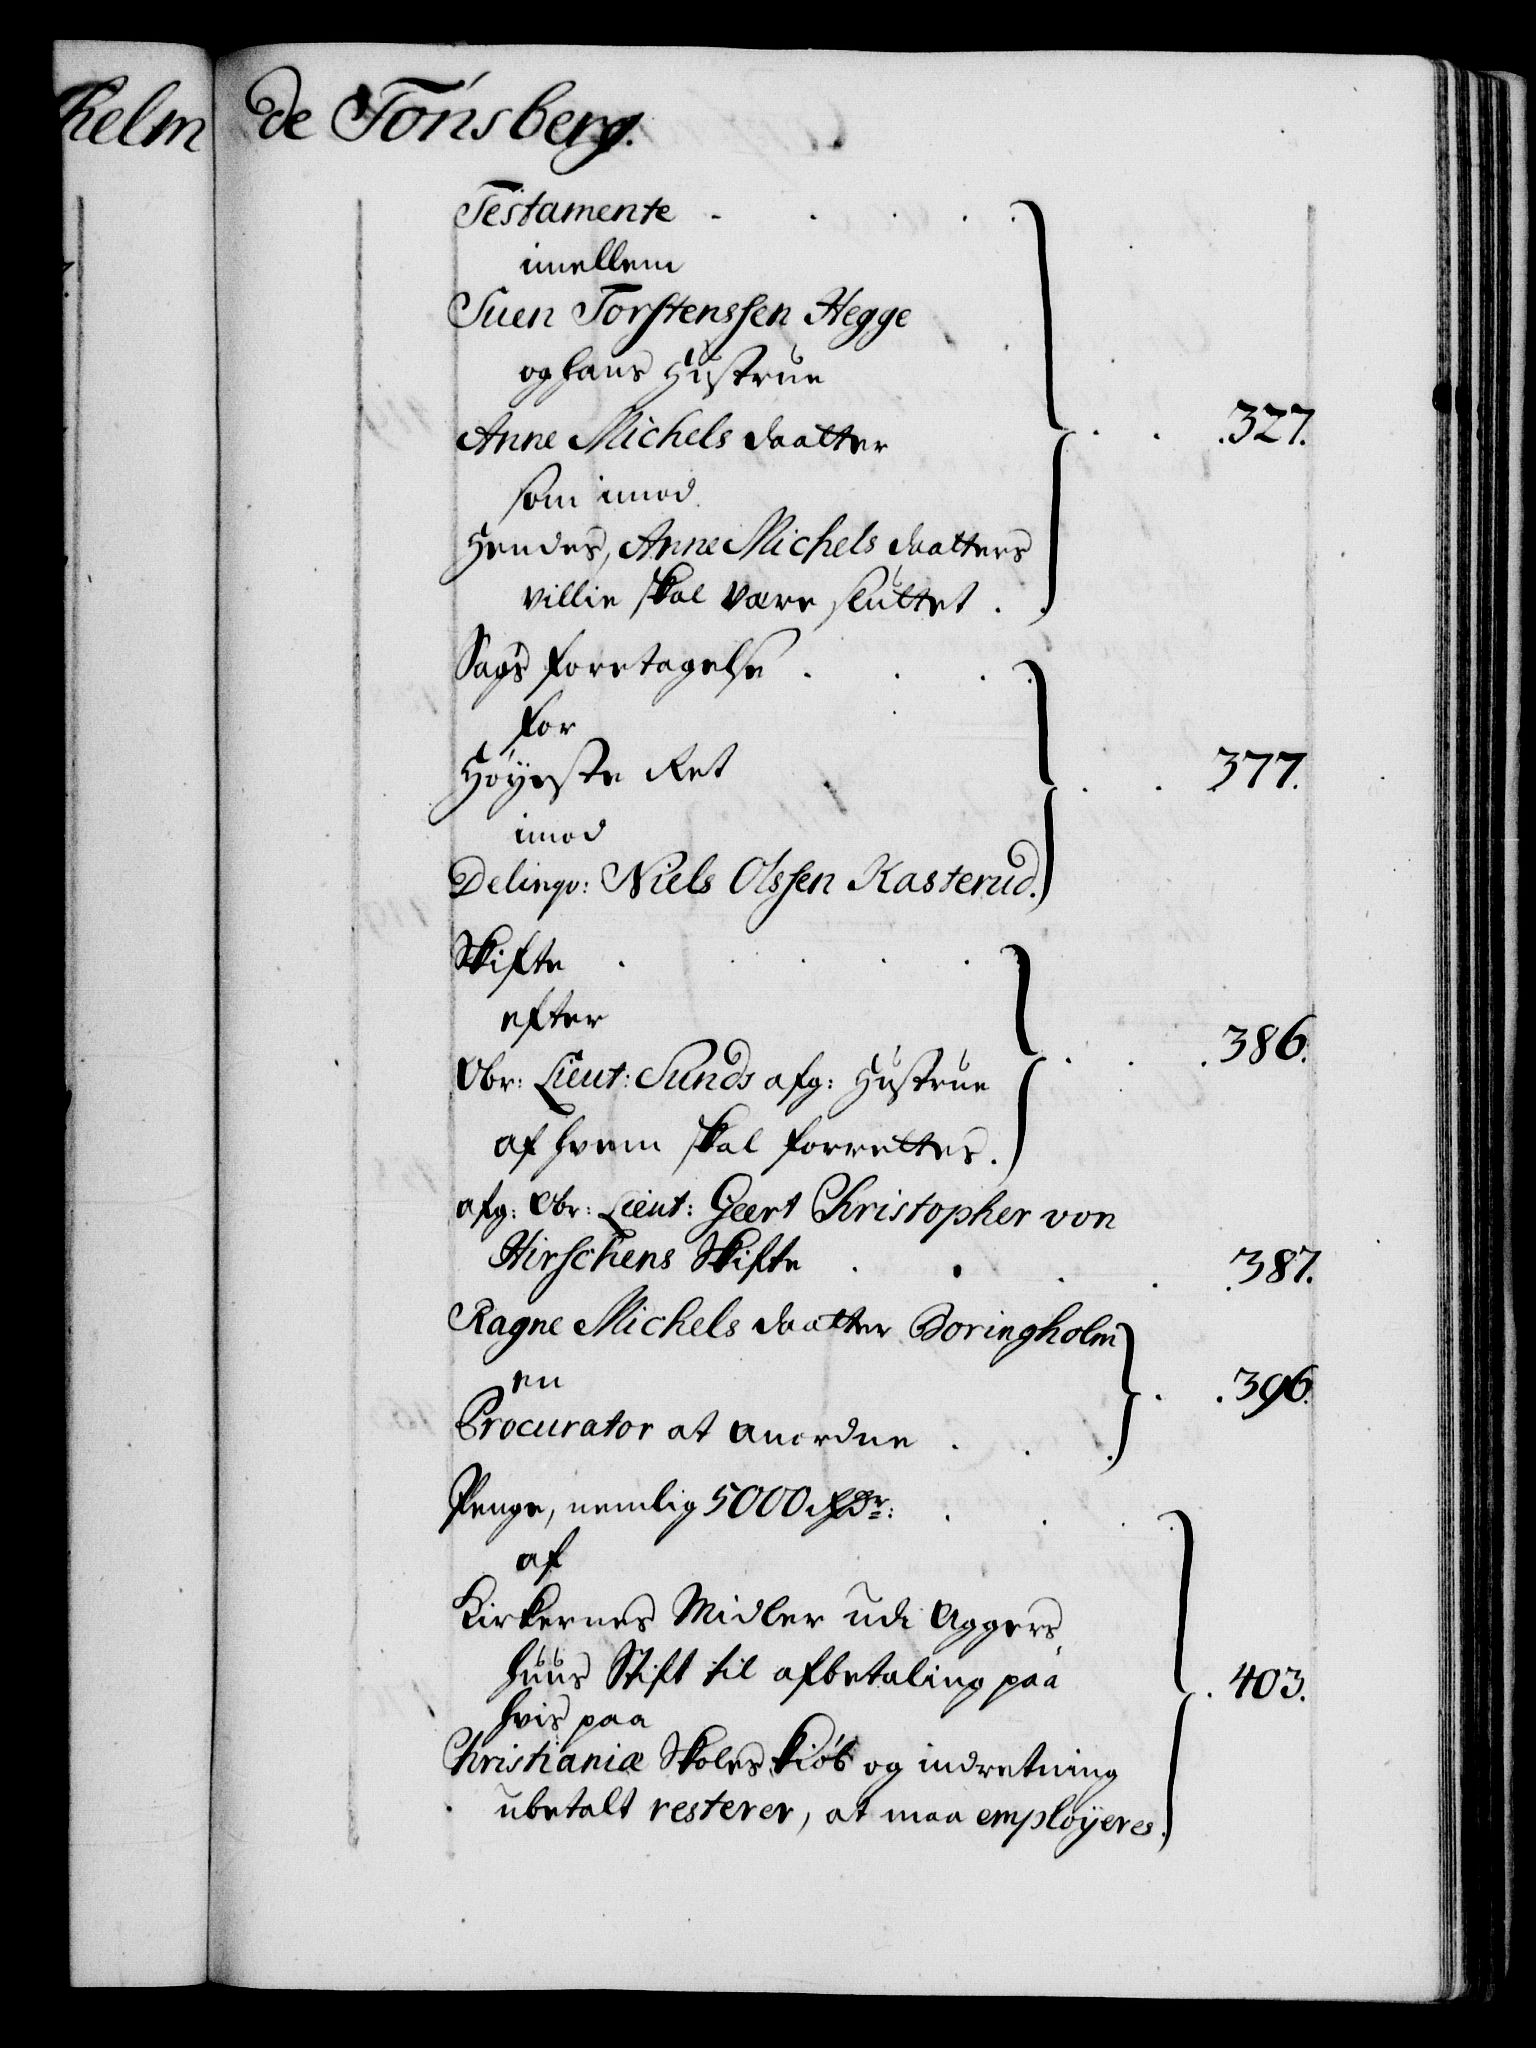 helm
de Tönsberg.
Testamente . . . . .
imellem
Suen Torstenssen Hegge
og hans Hustrue
Anne Michels daatter . . .327.
som imod
Hendes, Anne Michels daatters
villie skal være sluttet . .
Sags foretagelse . . . .
for
Höyeste Ret . . 377.
imod
Delinqv: Niels Olssen Kasterud.
Skifte . . . . .
efter
Obr: Lieut: Sunds afg: Hustrue . . .386.
af hvem skal forrettes.
afg: Obr: Lieut: Geert Christopher von
Hirschens Skifte . . . . .387.
Ragne Michels daatter Boringholm
en . .396.
Procurator at anordne . . .
Penge, nemlig 5000 Rdr: . . . .
af
Kirkernes Midler udi Aggers-
huus Stift til afbetaling paa .403.
hvis paa
Christianiæ Skoles kiöb og indretning
ubetalt resterer, at maa employeres.